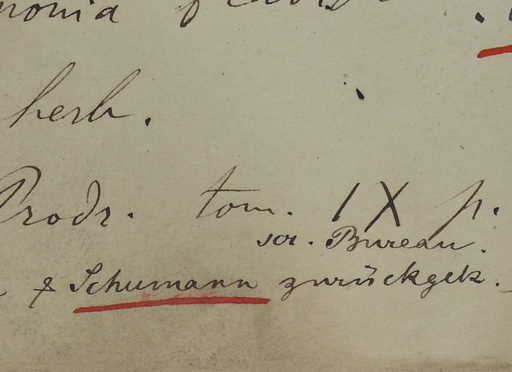 herb.
Prodr. tom. IX p.
scr. Bureau.
& Schumann zurückgek.